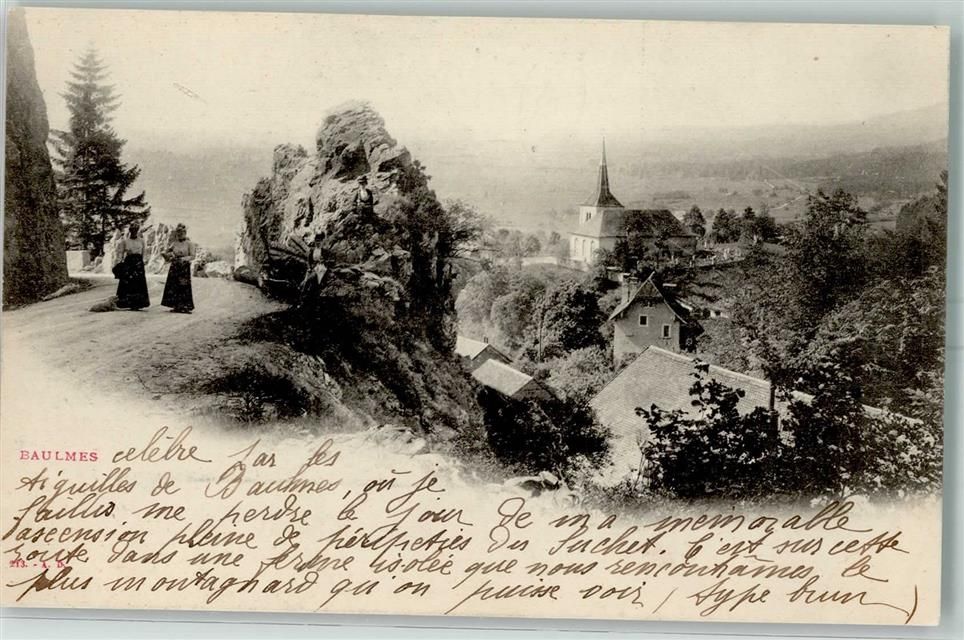 BAULMES célèbre par ses
Aiguilles de Baulmes, où je
faillis me perdre le jour de ma mémorable
ascension pleine de péripéties du Suchet. C'est sur cette
route dans une ferme isolée que nous rencontrâmes le
213. - A. D.
plus montagnard qu'on puisse voir (type brun)